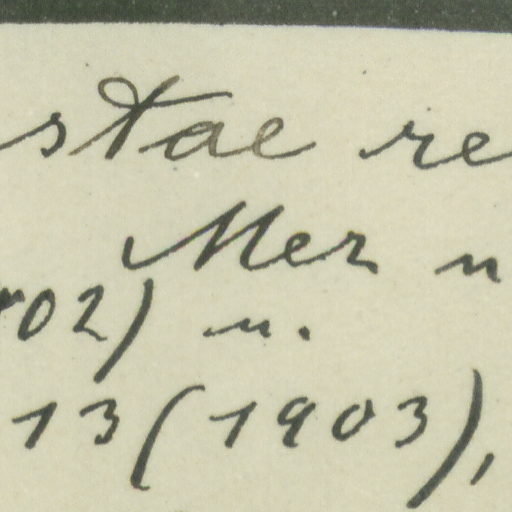 stae re
Mer u
02) u.
13 (1903),